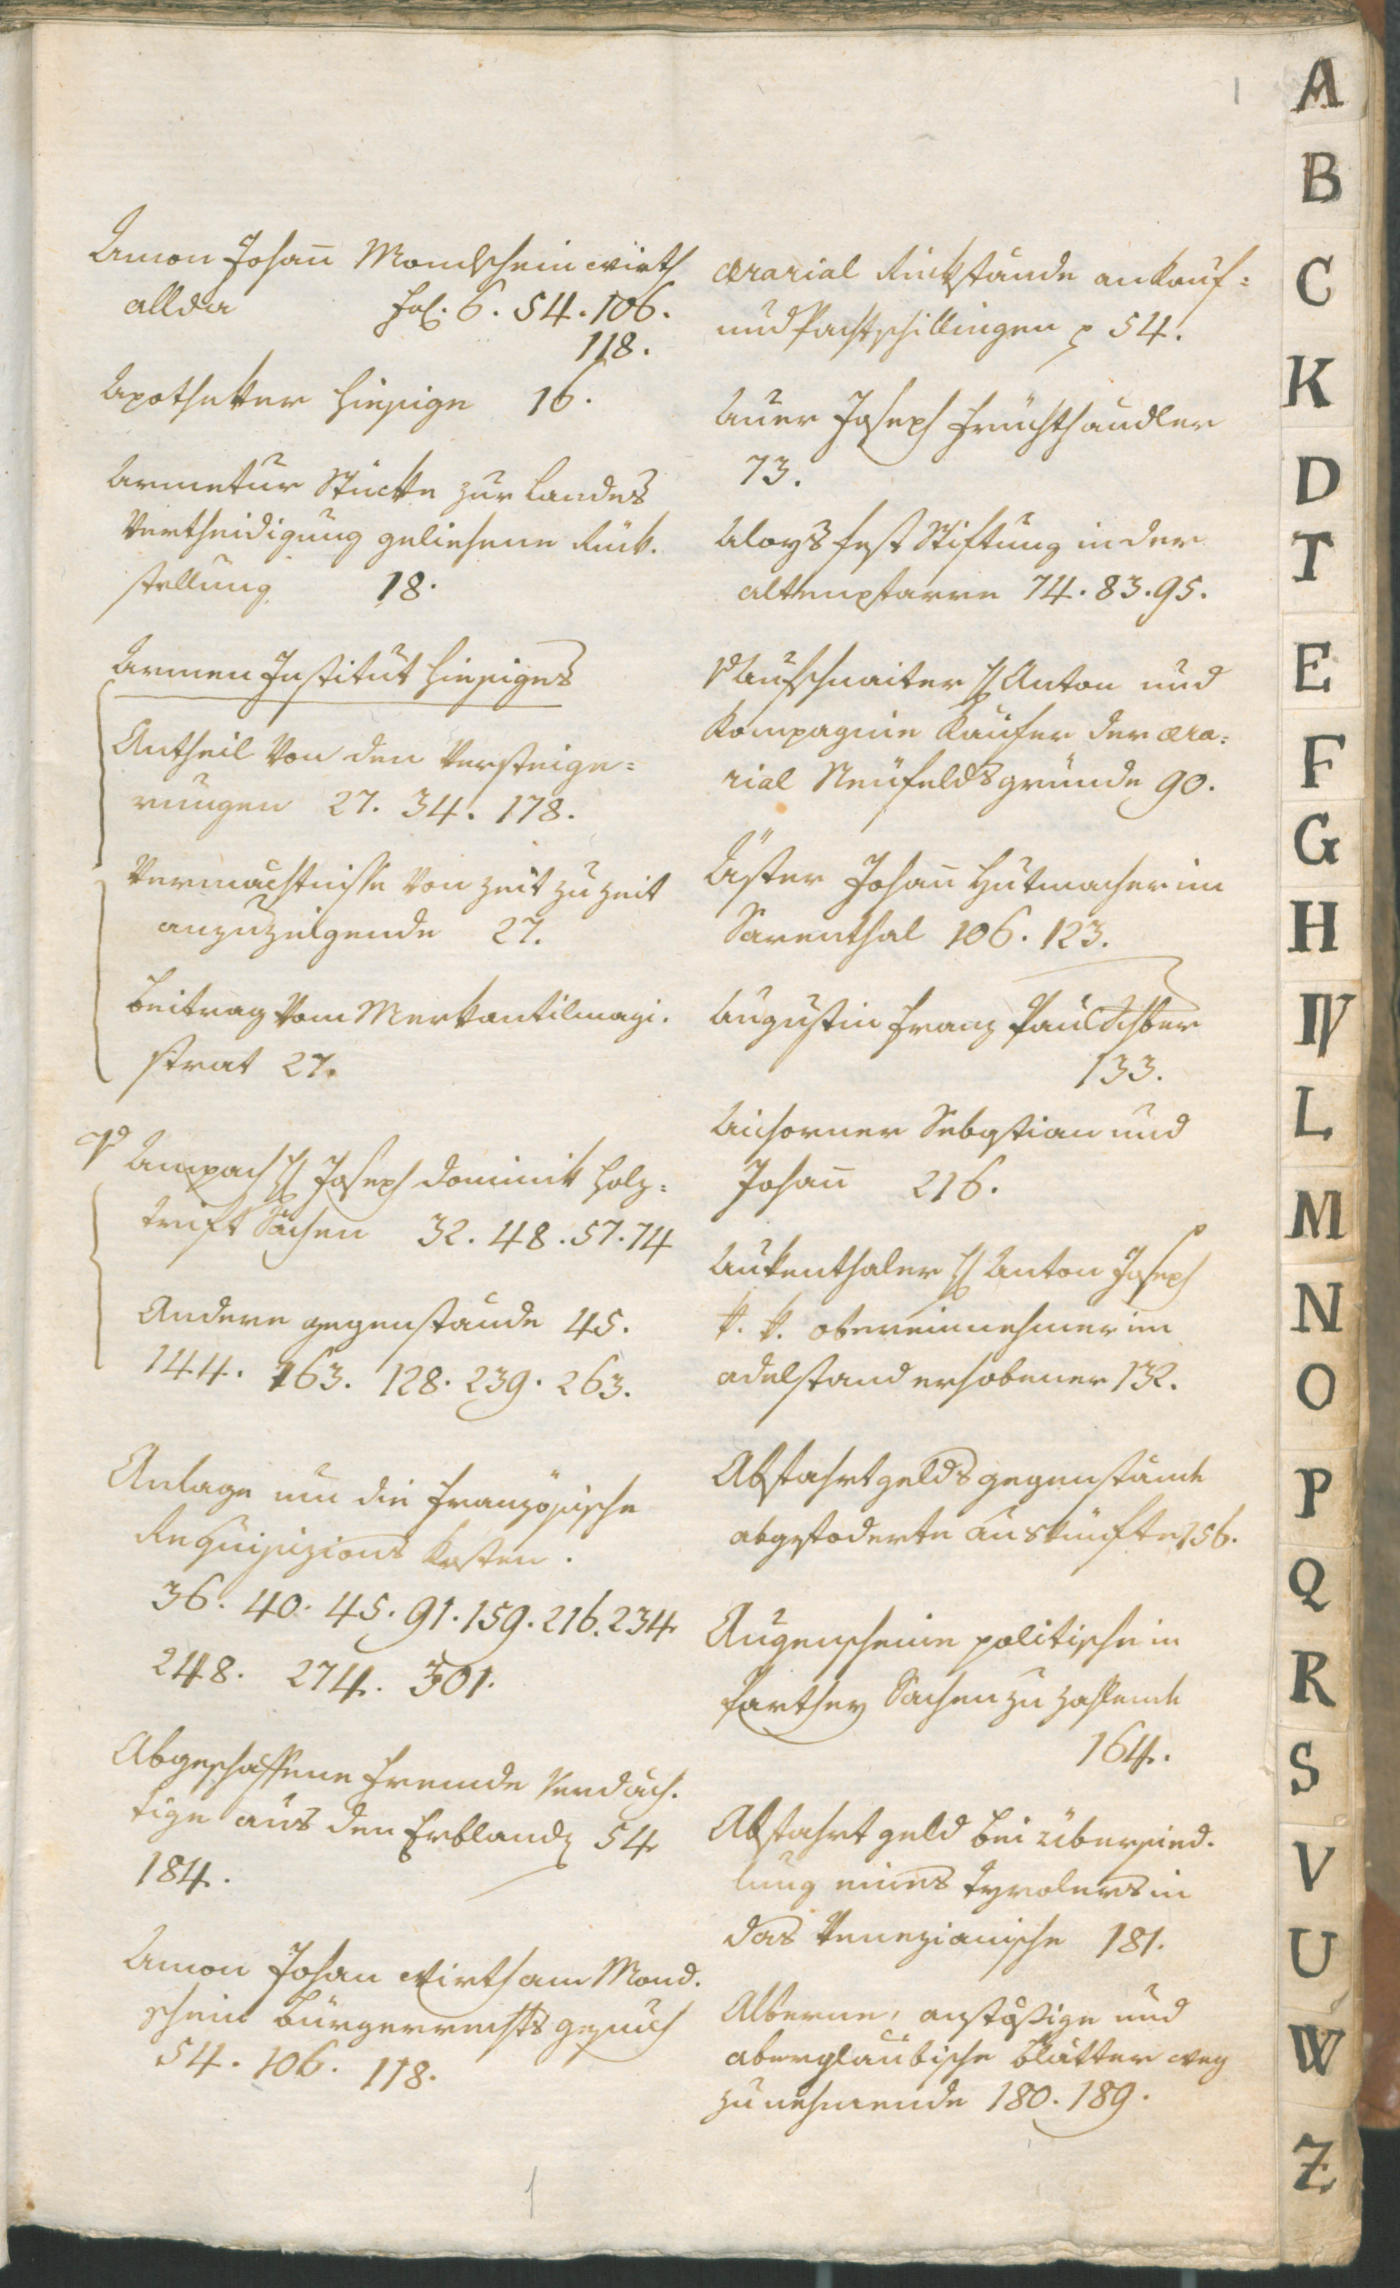 1
Amon Johan̄ Mondschein wirth
allda fol. 6. 54. 106.
118.
Apothekker hiesige 16.
Armetur Stückke zur Landes
Vertheidigung geliehene Rük.
stellung 18.
Armen Institut hiesiges
Antheil Von den Versteige=
rungen 27. 34. 178.
Vermächtnisse Von zeit zu zeit
anzuzeigende 27.
Beitrag Vom Merkantilmagi.
strat 27.
v Anrpach H Joseph Dominik Holz=
trift Sachen 32. 48. 57. 74
Andere gegenstände 45.
144. 163. 128. 239. 263.
Anlage um die französische
Requisizions Kosten.
36. 40. 45. 91. 159. 216. 234
248. 274. 301.
Abgeschaffene fremde Verdäch.
tige aus den Erblanden 54
184.
Amon Johan wirth am Mond.
schein Bürgerrechts gesuch
54. 106. 118.
ærarial Rückstände an Kauf=
und Pachtschillingen 54.
Auer Joseph Früchthändler
73.
Aloys fest Stiftung in der
altenpfarre 74. 83. 95.
v Aufschnaiter H Anton und
Kompagnie Käufer der æra=
rial Neufelds gründe 90.
Äster Johan̄ Hutmacher im
Sarenthal 106. 123.
Augustin Franz Paul
133.
Aichorner Sebastian und
Johan̄ 216.
Aukenthaler H Anton Joseph
k. k. obereinnehmer im
adelstand erhobener 132.
Abfahrtgelds gegenstände
abgefoderte auskünfte 156.
Augenscheine politische in
Parthey Sachen zu zahlende
164.
Abfahrt geld bei übersied.
lung eines Tyrolers in
das Venezianische 181.
Alberne, anstößige und
abergläubische blätter weg
zu nehmende 180. 189.
1
A
B
C
K
D
T
E
F
G
H
IV
L
M
N
O
P
Q
R
S
V
U
W
Z